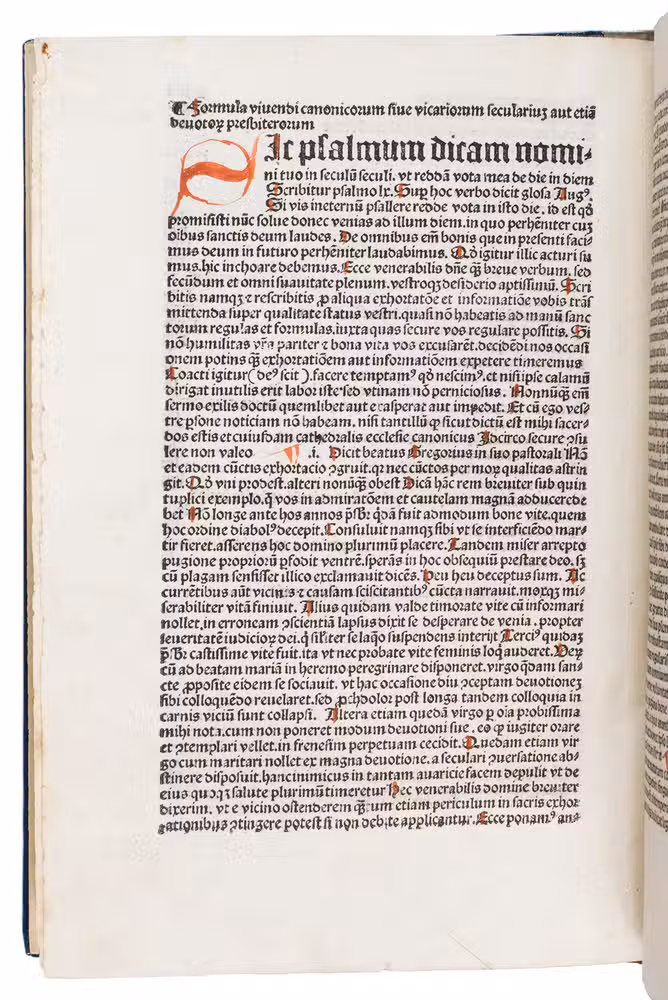 ¶ Formula viuendi canonicorum siue vicariorum seculariuʒ aut etiā
deuotoꝝ presbiterorum
SIc psalmum dicam nomi⸗
ni tuo in seculū seculi. vt reddā vota mea de die in diem
Scribitur psalmo lx. Suꝑ hoc verbo dicit glosa Augꝰ.
Si vis ineternū psallere redde vota in isto die. id est qđ
promisisti nūc solue donec venias ad illum diem. in quo perhēniter cuʒ
oibus sanctis deum laudes. De omnibus em̄ bonis que in presenti faci⸗
mus deum in futuro perhēniter laudabimus. Qđ igitur illic acturi su
mus. hic inchoare debemus. Ecce venerabilis dn̄e qʒ̄ breue verbum. sed
fecūdum et omni suauitate plenum. vestroqʒ desiderio aptissimū. Scri
bitis namqʒ ⁊ rescribitis ꝓ aliqua exhortatōe et informatiōe vobis trās
mittenda super qualitate status vestri. quasi nō habeatis ad manū sanc
torum regulas et formulas. iuxta quas secure vos regulare possitis. Si
nō humilitas vr̄a pariter ⁊ bona vita vos excusarēt. decidēdi nos occasi
onem potius qʒ̄ exhortatiōem aut informatiōem expetere timeremus
Coacti igitur (deꝰ scit). facere temptamꝰ qđ nescimꝰ. et nisi ipse calamū
dirigat inutilis erit labor iste sed vtinam nō perniciosus. Nonnūqʒ̄ em̄
sermo exilis doctū quemlibet aut exasperat aut impedit. Et cū ego ves⸗
tre ꝑsone noticiam nō habeam. nisi tantillū ꝙ sicut dictū est mihi sacer⸗
dos estis et cuiusdam cathedralis ecclesie canonicus Idcirco secure ꝯsu
lere non valeo .i. Dicit beatus Gregorius in suo pastorali Nō vna
et eadem cūctis exhortacio ꝯgruit. qr nec cūctos per moꝝ qualitas astrin
git. Qđ vni prodest. alteri nonnūqʒ obest Dicā hāc rem breuiter sub quin
tuplici exemplo. ꝙ vos in admiratōem et cautelam magnā adducere de
bet Nō longe ante hos annos p̄sbr̄ qdā fuit admodum bone vite. quem
hoc ordine diabolꝰ decepit. Consuluit namqʒ sibi vt se interficiēdo mar⸗
tir fieret. asserens hoc domino plurimū placere. Tandem miser arrepto
pugione propriorū ꝑfodit ventrē. sperās in hoc obsequiū prestare deo. sʒ
cū plagam sensisset illico exclamauit dicēs. Heu heu deceptus sum. Ac
currētibus aūt vicinis ⁊ causam sciscitantibꝰ cūcta narrauit. moxqʒ mi⸗
serabiliter vitā finiuit. Alius quidam valde timorate vite cū informari
nollet. in erroneam ꝯscientiā lapsus dixit se desperare de venia. propter
seueritatē iudicioꝝ dei. ꝙ siĺiter se laqo suspendens interijt Terciꝰ quidaʒ
p̄sbr̄ castissime vite fuit. ita vt nec probate vite feminis loqͥ auderet. Deꝝ
cū ad beatam mariā in heremo peregrinare disponeret. virgo qdam san⸗
cte ꝓposite eidem se sociauit. vt hac occasione diu ꝯceptam deuotioneʒ
sibi colloquēdo reuelaret. sed ꝓchdolor post longa tandem colloquia in
carnis viciū sunt collapsi. Altera etiam quedā virgo ꝑ oīa probissima
mihi nota. cum non poneret modum deuotioni sue. eo ꝙ iugiter orare
et ꝯtemplari vellet. in frenesim perpetuam cecidit. Quedam etiam vir
go cum maritari nollet ex magna deuotione. a seculari ꝯuersatione ab⸗
stinere disposuit. hanc inimicus in tantam auaricie facem depulit vt de
eius quoqʒ salute plurimū timeretur Hec venerabilis domine breuiter
dixerim. vt e vicino ostenderem qʒ̄tum etiam periculum in sacris exhor
tationibus ꝯtingere potest si non debite applicantur. Ecce ponamꝰ an⸗